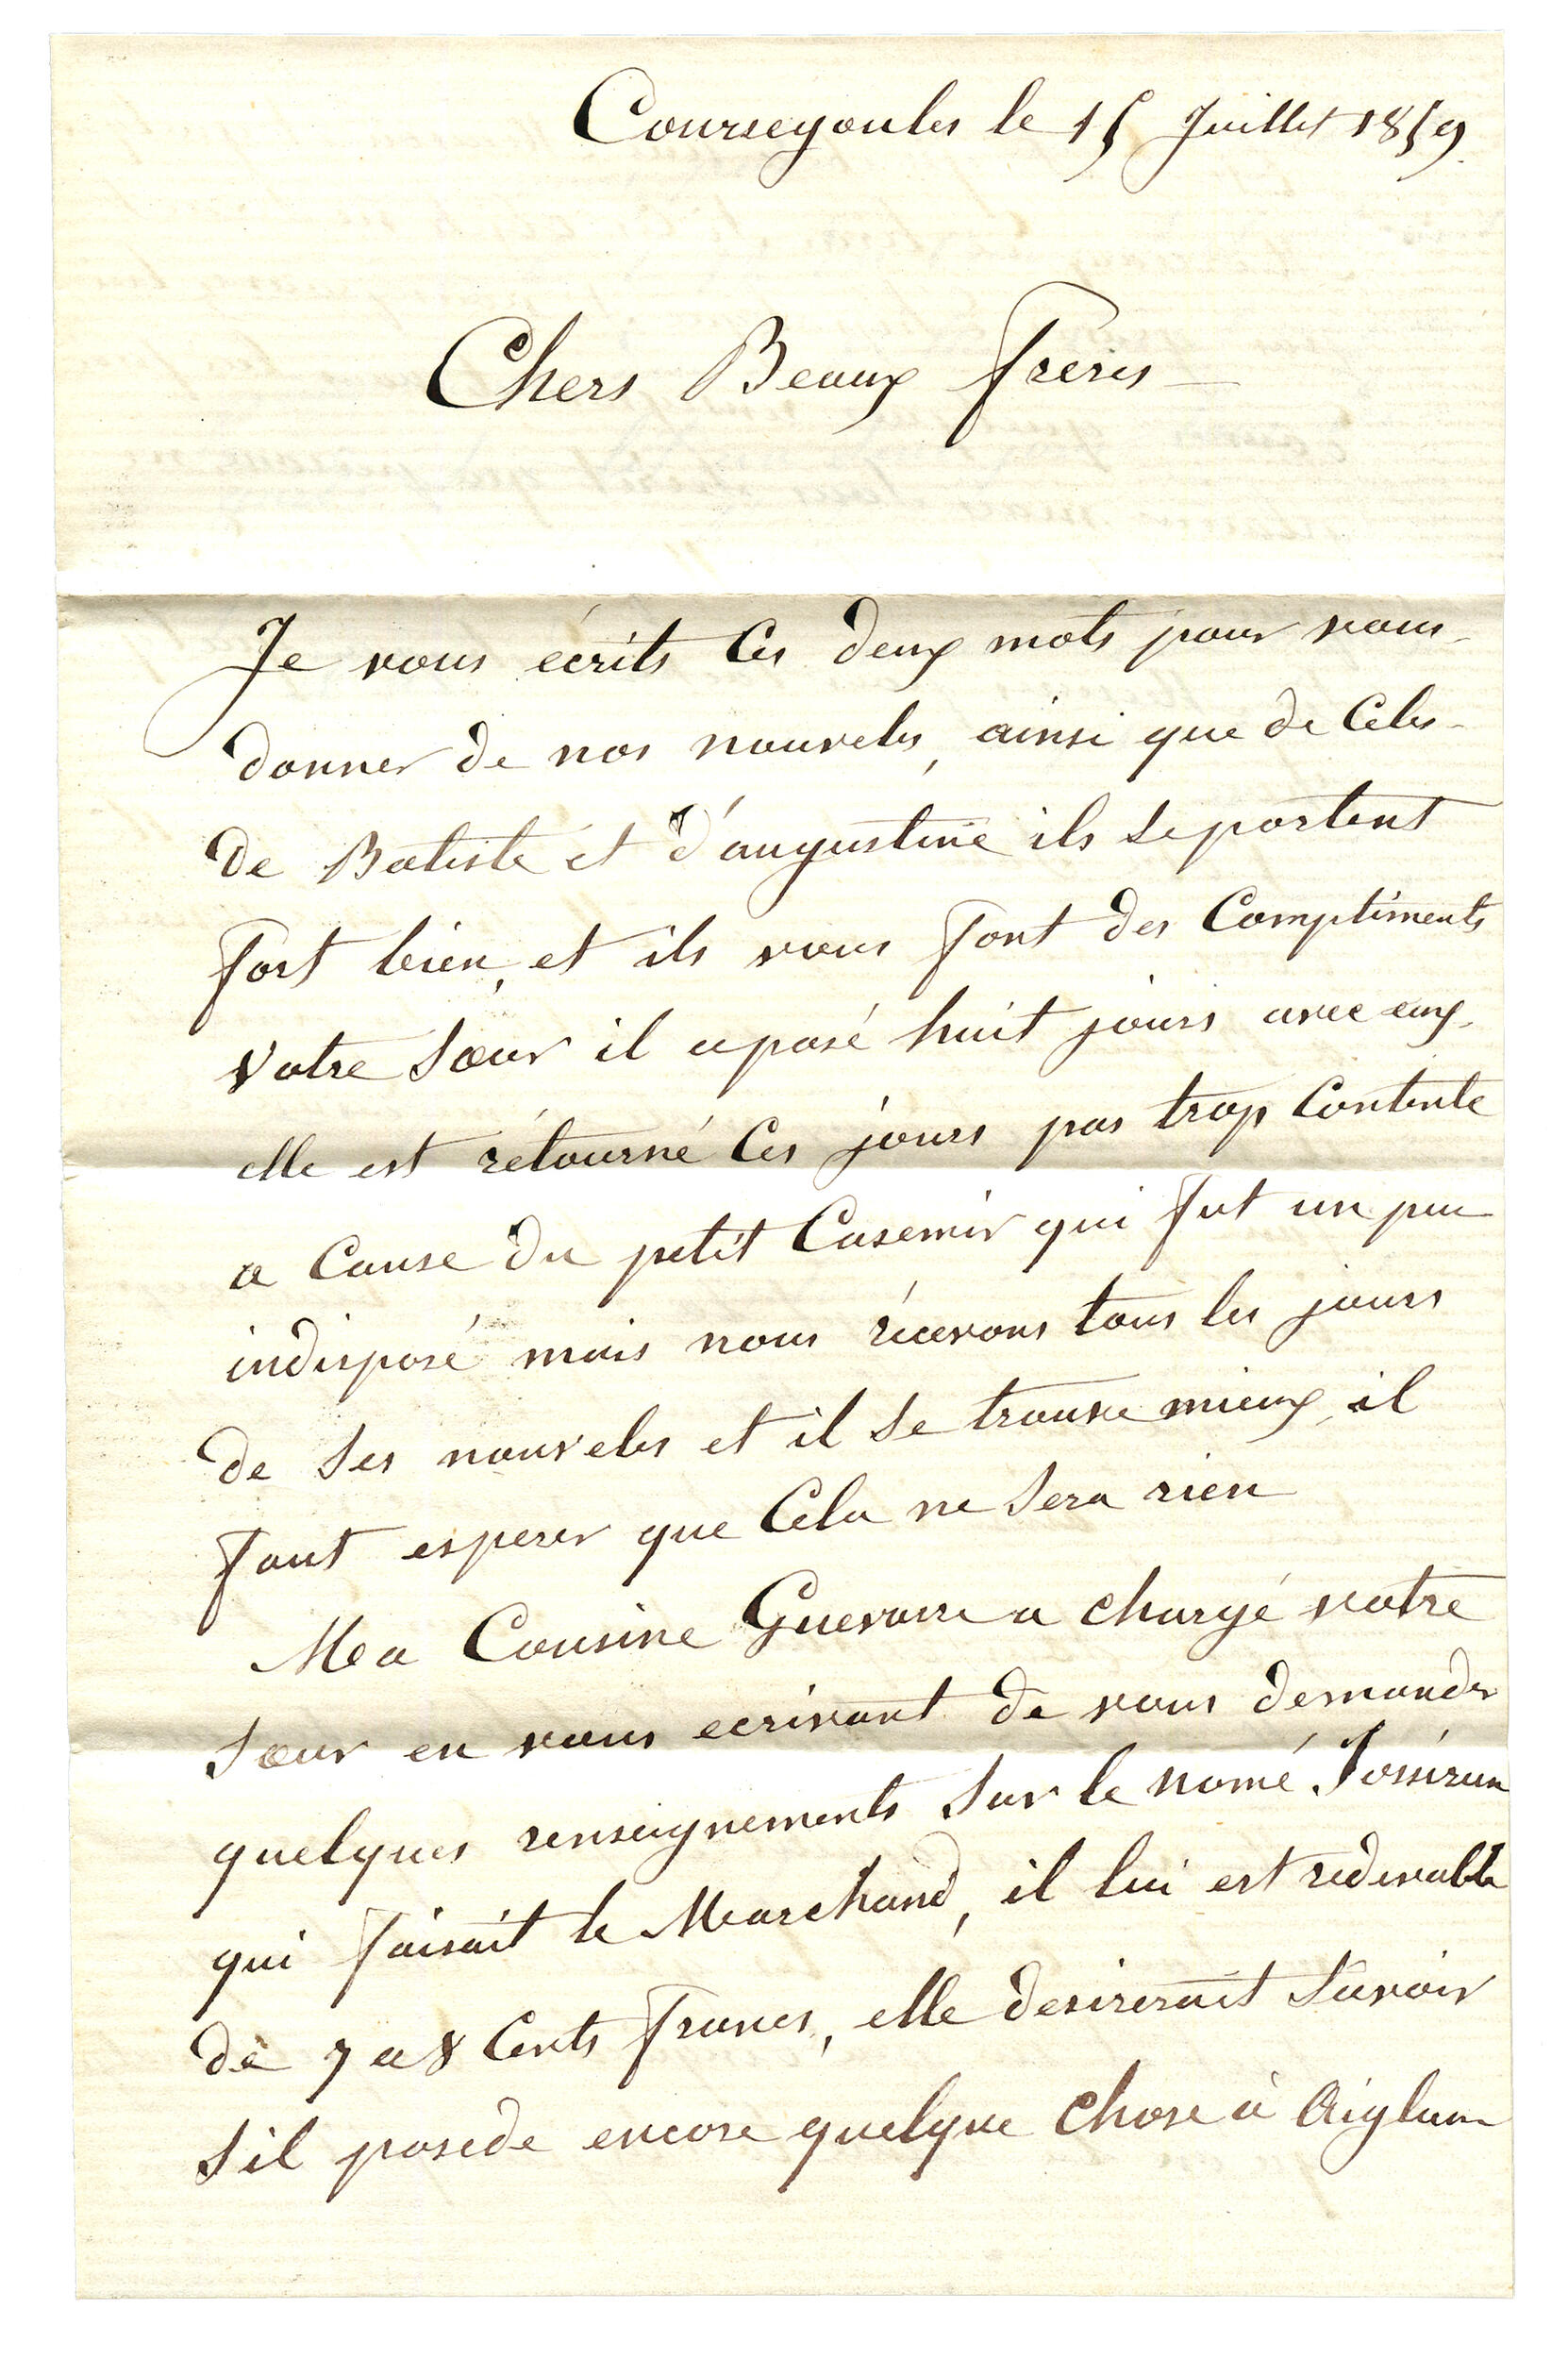 Coursegoules le 15 Juillet 1859.
Chers Beaux Freres
Je vous écrits Ces deux mots pour vous
donner de nos nouveles, ainsi que de Celes
de Batiste et d'augustine ils se portent
fort bien, et ils vous font des Compliments
Votre Sœur il a pasé huit jours avec eux.
elle est rétourné Ces jours pas trop Contente
a Cause du petit Casemir qui fut un peu
indisposé mais nous récevons tous les jours
de Ses nouveles et il Se trouve mieux, il
faut esperer que Cela ne Sera rien
Ma Cousine a chargé votre
Sœur en vous ecrivant de vous demander
quelques renseignements Sur le nomé
qui faisait le Marchand, il lui est redevable
de 7 a 8 Cents francs, elle desirerait Savoir
S'il posede encore quelque Chose à Aiglun